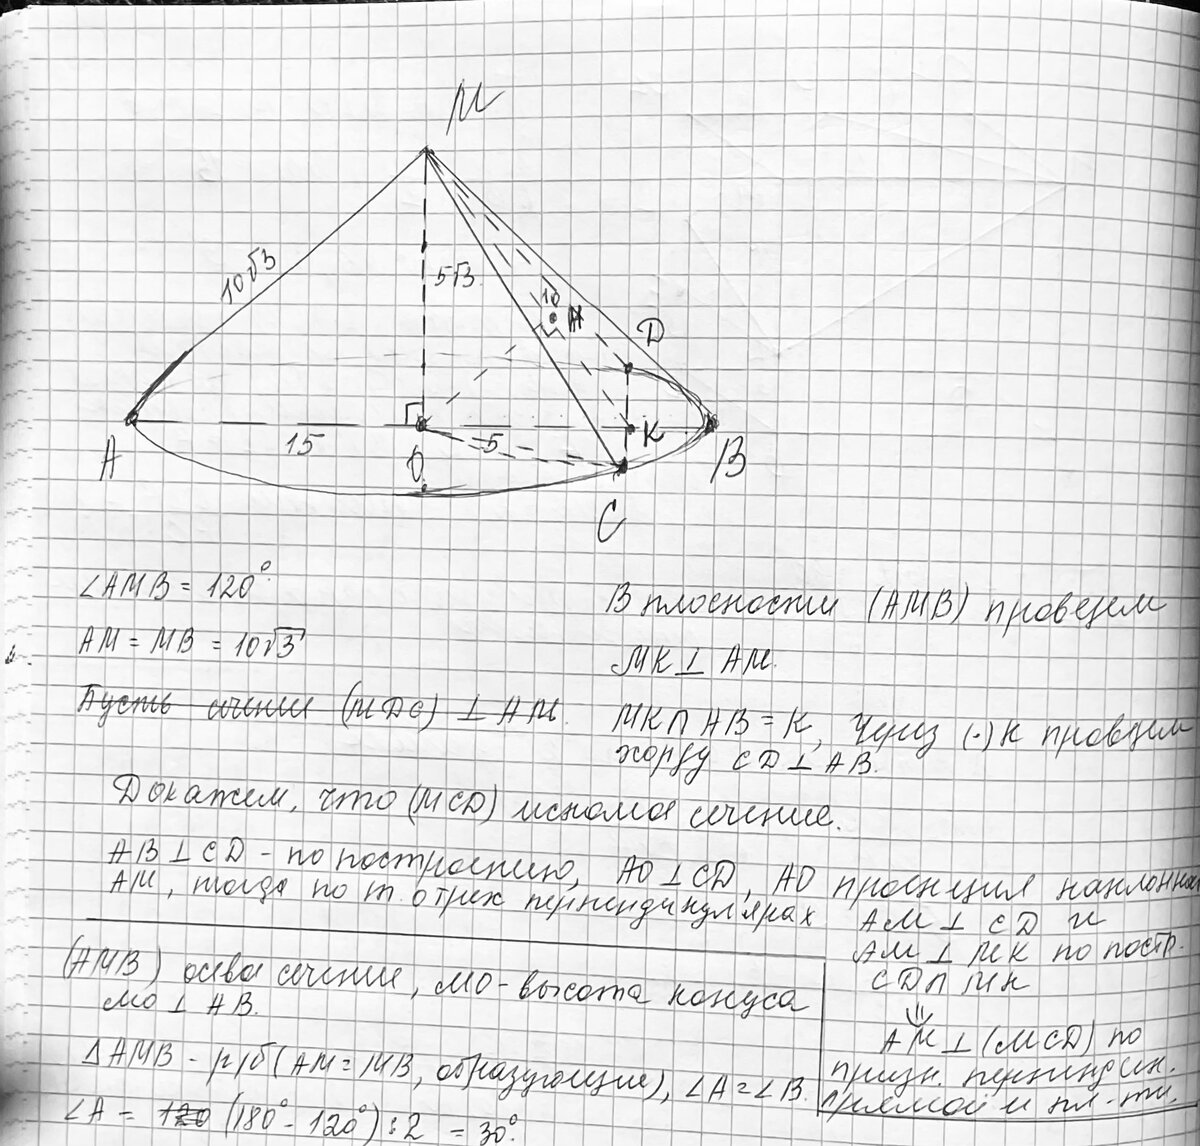 M
10√3
5√3
10
H
D
A
15
O
5
K
B
C
∠AMB = 120°.
AM = MB = 10√3
Пусть сечение (MDC) ⊥ AM.
В плоскости (AMB) проведем
MK ⊥ AM.
MK ∩ AB = K, Через (·) K проведем
хорду CD ⊥ AB.
Докажем, что (MCD) искомое сечение.
AB ⊥ CD - по построению, AO ⊥ CD, AO проекция наклонной
AM, тогда по т. о трех перпендикулярах AM ⊥ CD и
AM ⊥ MK по постр.
CD ∩ MK
⇓
AM ⊥ (MCD) по
призн. перпендик.
прямой и пл-ти.
(AMB) осевое сечение, MO - высота конуса
MO ⊥ AB.
△AMB - р/б (AM = MB, образующие), ∠A = ∠B.
∠A = 120 (180° - 120°) : 2 = 30°.